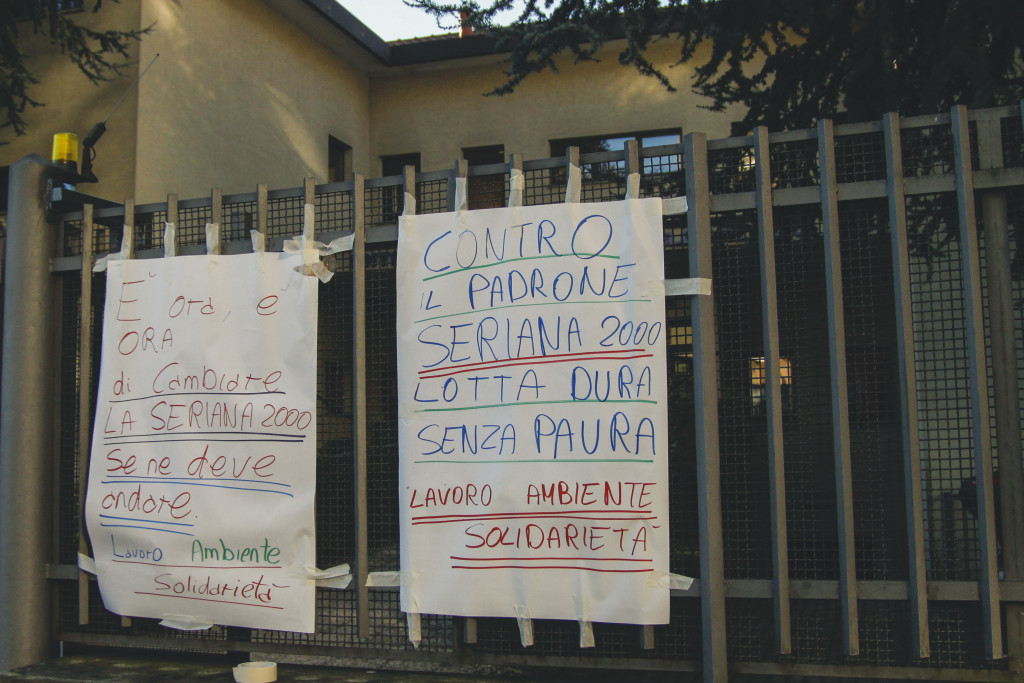 È ora, e
ORA
di Cambiare
LA SERIANA 2000
se ne deve
andare.
Lavoro Ambiente
Solidarietà
CONTRO
IL PADRONE
SERIANA 2000
LOTTA DURA
SENZA PAURA
LAVORO AMBIENTE
SOLIDARIETÀ